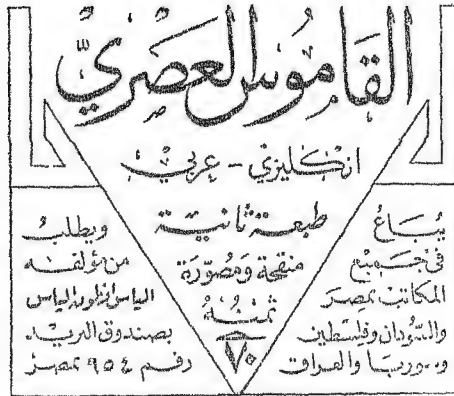 القاموس العصريّ
انكليزي - عربي
طبعة ثانية
منقحة ومصوّرة
ثمنه
٧٠
يباع
في جميع
المكاتب بمصر
والسودان وفلسطين
وسوريا والعراق
ويطلب
من مؤلفه
الياس انطون الياس
بصندوق البريد
رقم ٩٥٤ بمصر